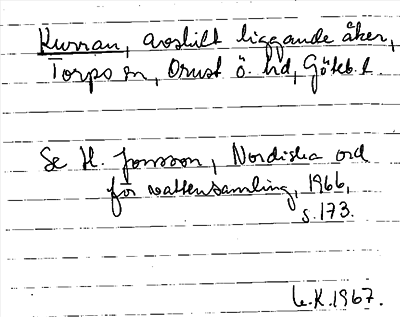 Kurran, avskilt liggande åker,
Torps sn, Orust ö. hd, Göteb. l.
Se H. Jonsson, Nordiska ord
för vattensamling, 1966,
s. 173.
L.K. 1967.